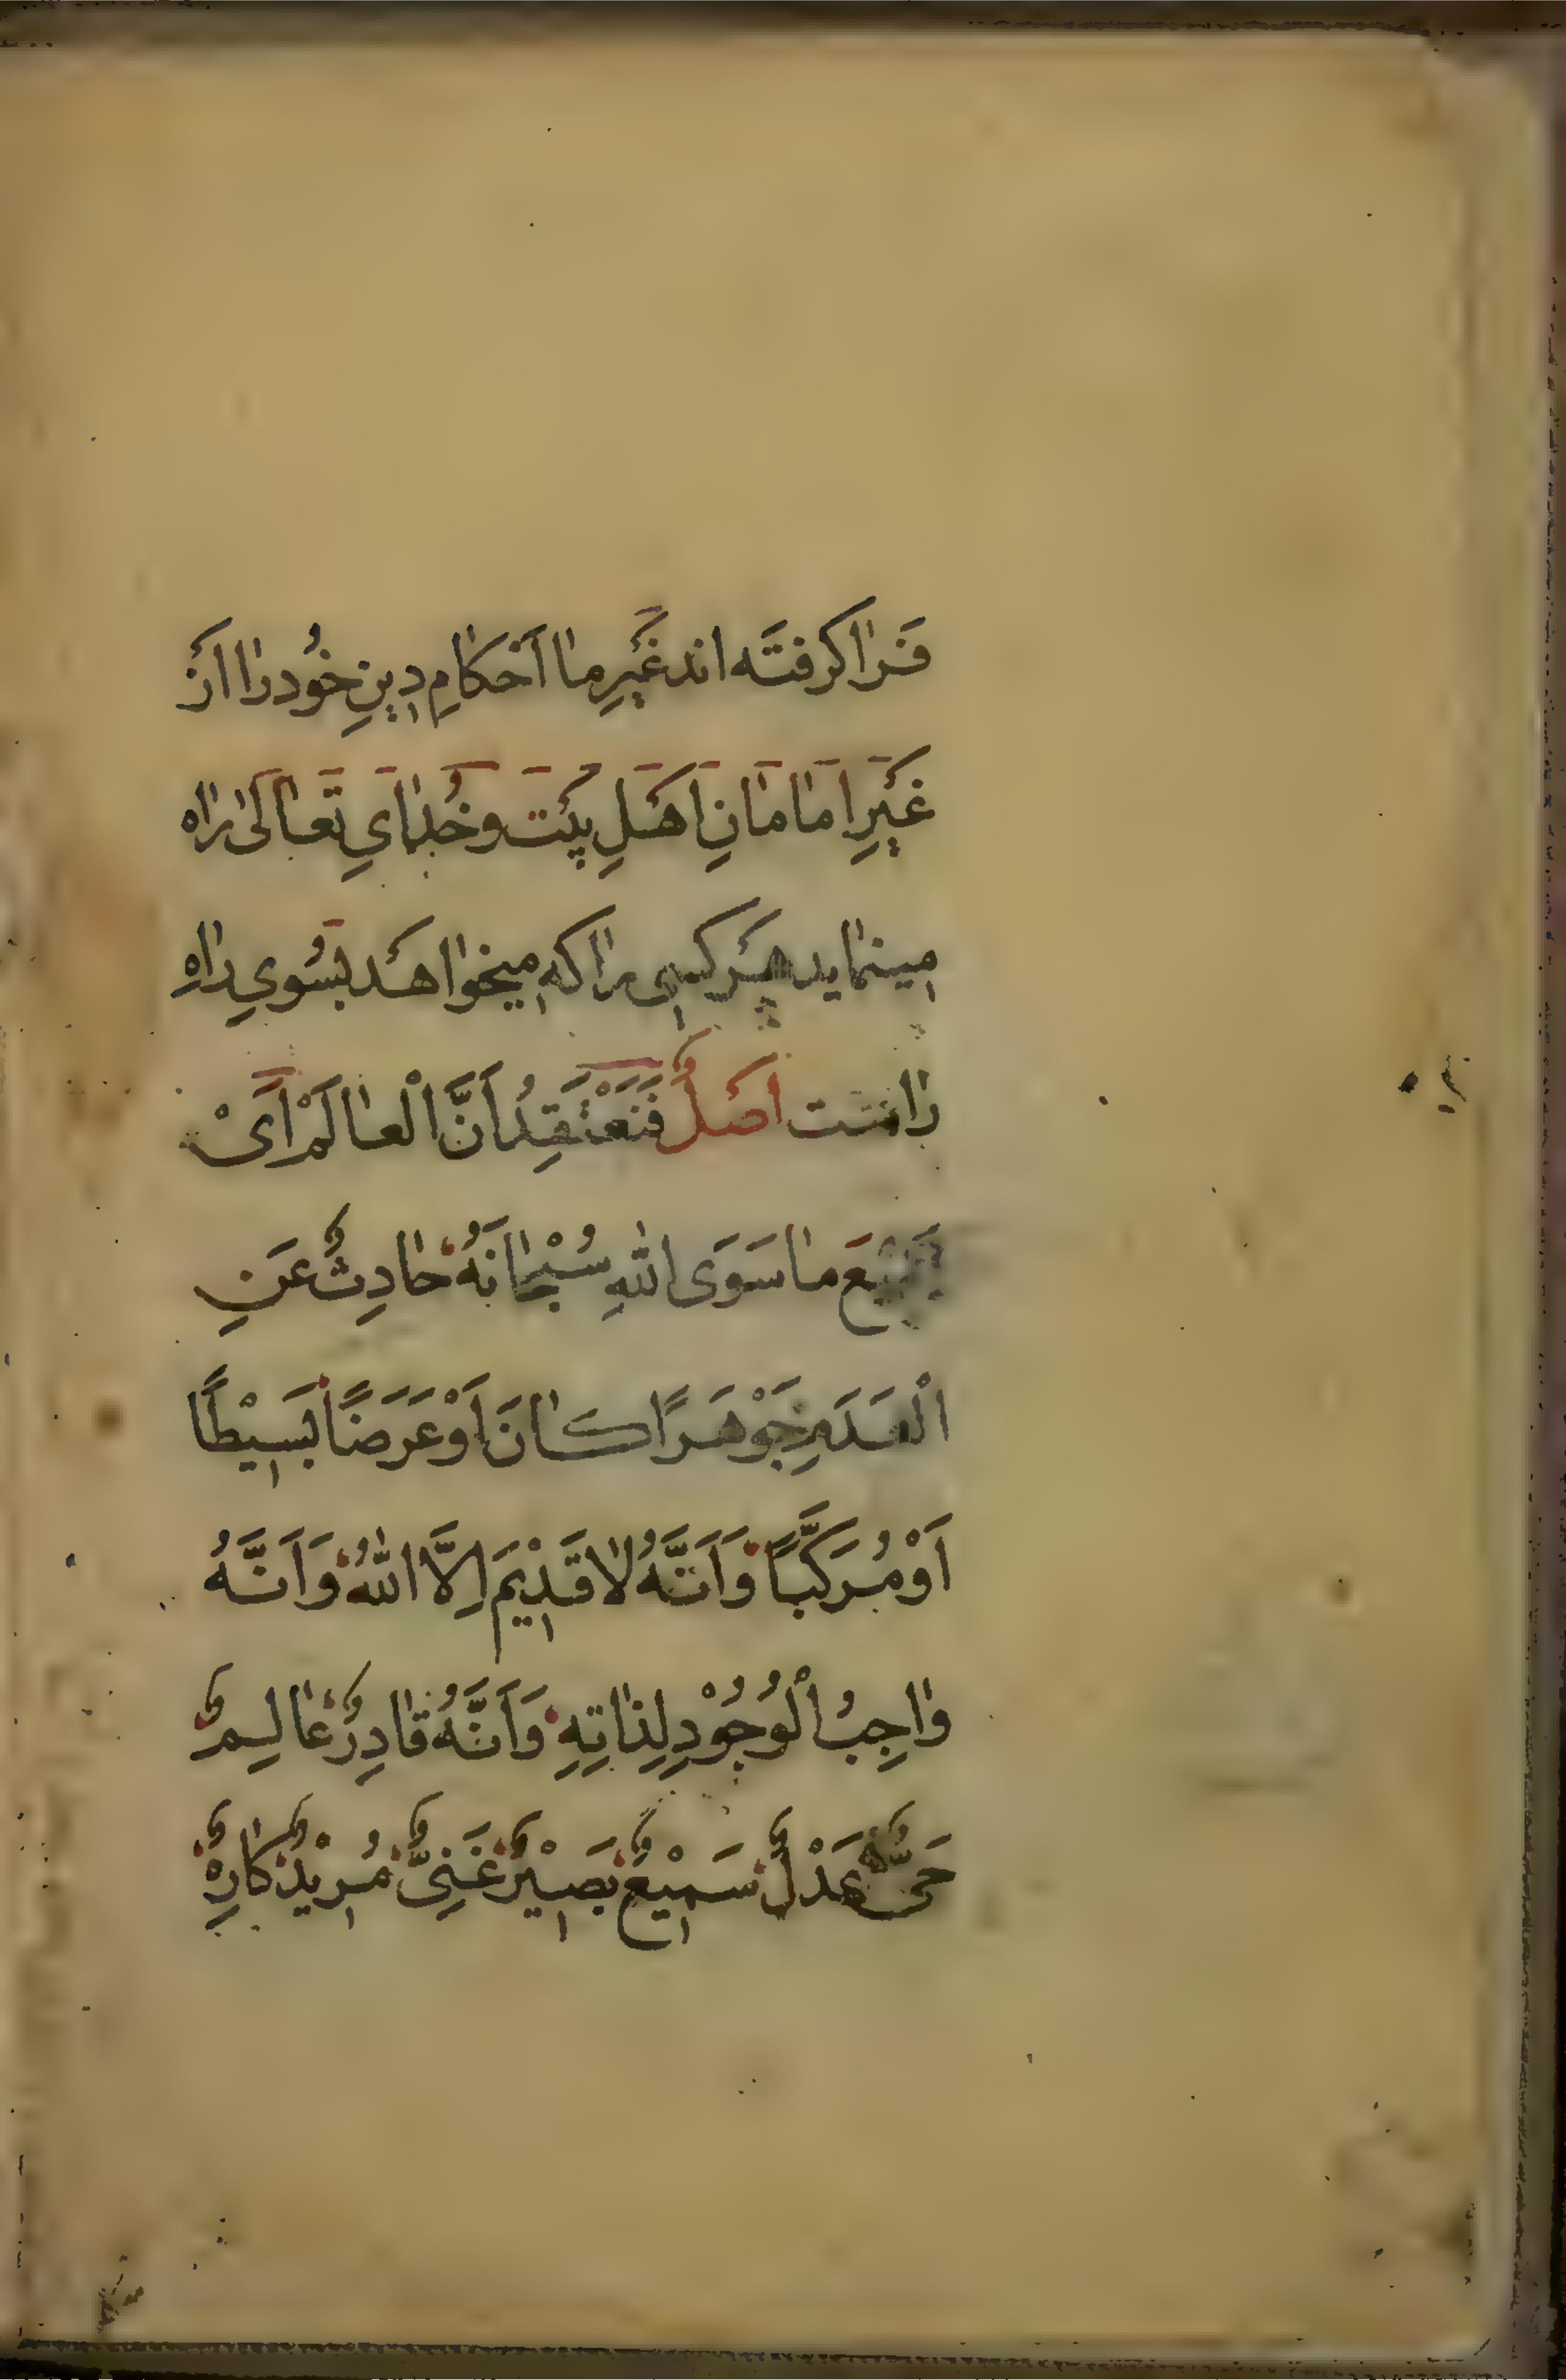 فَرا كرفتَه اند غَيرِ ما اَحكامِ دِينِ خُود را اَز
غَيرِ اَمامانِ اَهَلِ بيَت و خُدایِ تَعالىٰ راه
مِينمايد هَركسِى را كه مِيخواهَد بسُوىِ راهِ
راست اَصلٌ فَنَعْتَقِدُ اَنَّ الْعالَمْ اَىْ
جَمِيْعَ ما سَوَى اللهِ سُبْحانَهُ حادِثٌ عَنِ
الْعَدَمِ جَوْهَرًا كانَ اَوْ عَرَضًا بَسِيْطًا
اَوْ مُرَكَّبًا وَ اَنَّهُ لا قَدِيْمَ اِلَّا اللهُ وَ اَنَّهُ
واجِبُ الْوُجُوْدِ لِذاتِهِ وَ اَنَّهُ قادِرٌ عالِمٌ
حَىٌّ عَدْلٌ سَمِيْعٌ بَصِيْرٌ غَنِىٌّ مُرِيْدٌ كارِهٌ